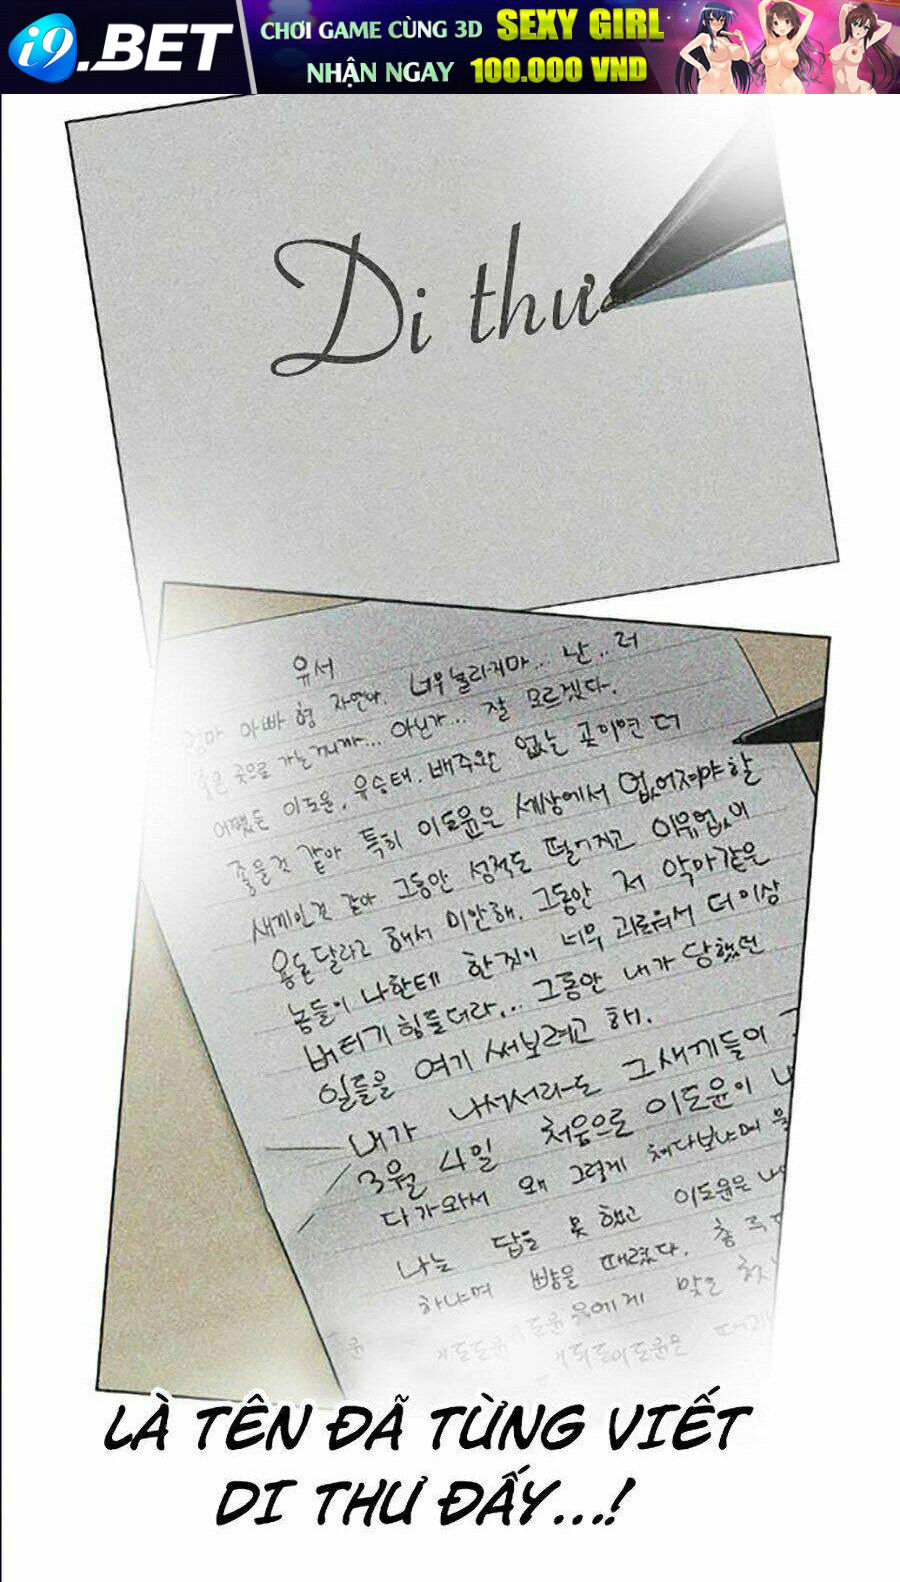 i9.BET
CHƠI GAME CÙNG 3D SEXY GIRL
NHẬN NGAY 100.000 VND
Di thư
유서
엄마 아빠 형 자연아. 너무 놀라지마.. 난.. 더
좋은 곳으로 가는거니까... 아닌가... 잘 모르겠다.
어쨌든 이도윤, 유승태, 배주완 없는 곳이면 더
좋을것 같아 특히 이도윤은 세상에서 없어져야 할
새끼인것 같아 그동안 성적도 떨어지고 이유없이
용돈달라고 해서 미안해. 그동안 저 악마같은
놈들이 나한테 한짓이 너무 괴로워서 더이상
버티기 힘들더라... 그동안 내가 당했던
일들을 여기 써보려고 해.
내가 나서서라도 그새끼들이
3월 4일 처음으로 이도윤이
다가와서 왜 그렇게 쳐다보냐며
나는 답을 못 했고 이도윤은
하냐며 뺨을 때렸다.
에게 맞은
LÀ TÊN ĐÃ TỪNG VIẾT
DI THƯ ĐẤY...!